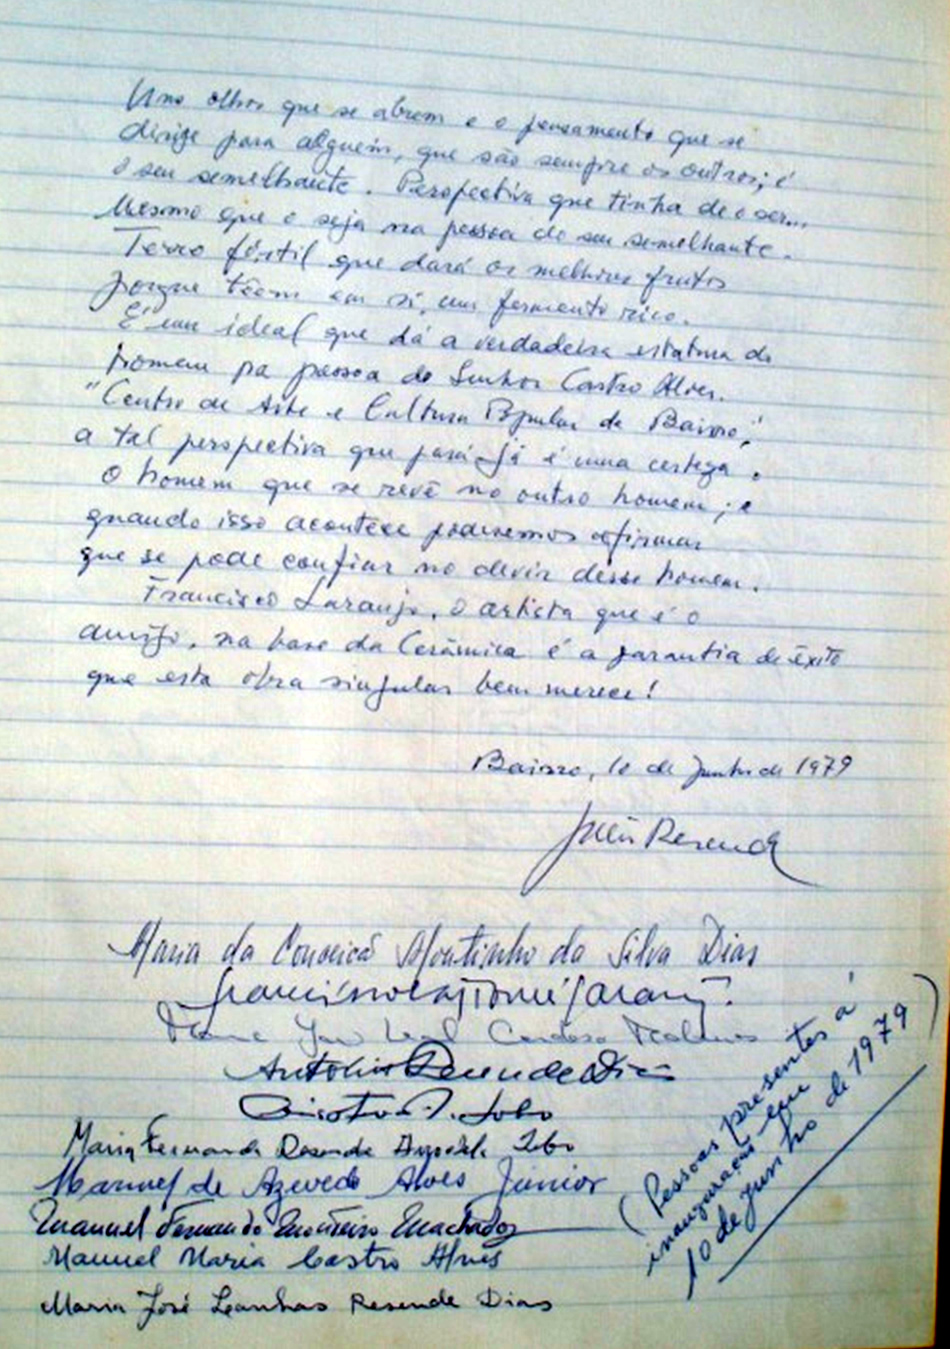 Uns olhos que se abrem e o pensamento que se
dirige para alguém, que são sempre os outros; é
o seu semelhante. Perspectiva que tinha de o ser...
Mesmo que o seja na pessoa do seu semelhante.
Terra fértil que dará os melhores frutos
porque têem em si, um fermento rico.
É um ideal que dá a verdadeira estatura do
homem na pessoa do Senhor Castro Alves.
"Centro de Arte e Cultura Popular de Bairro,"
a tal perspectiva que para já é uma certeza.
O homem que se revê no outro homem; e
quando isso acontece poderemos afirmar
que se pode confiar no devir desse homem.
Francisco Laranjo, o artista que é o
amigo, na base da Cerâmica é a garantia de êxito
que esta obra singular bem merece!
Bairro, 10 de Junho de 1979
Júlio Resende
Maria da Conceição Moutinho da Silva Dias
Francisco Laranjo
Maria Leal Cardoso
António Resende Dias
Lobo
Maria Fernanda Resende Lobo
Manuel de Azevedo Alves Júnior
Manuel Fernando Monteiro Machado
Manuel Maria Castro Alves
Maria José Leanhas Resende Dias
(Pessoas presentes à
inauguração em
10 de Junho de 1979)